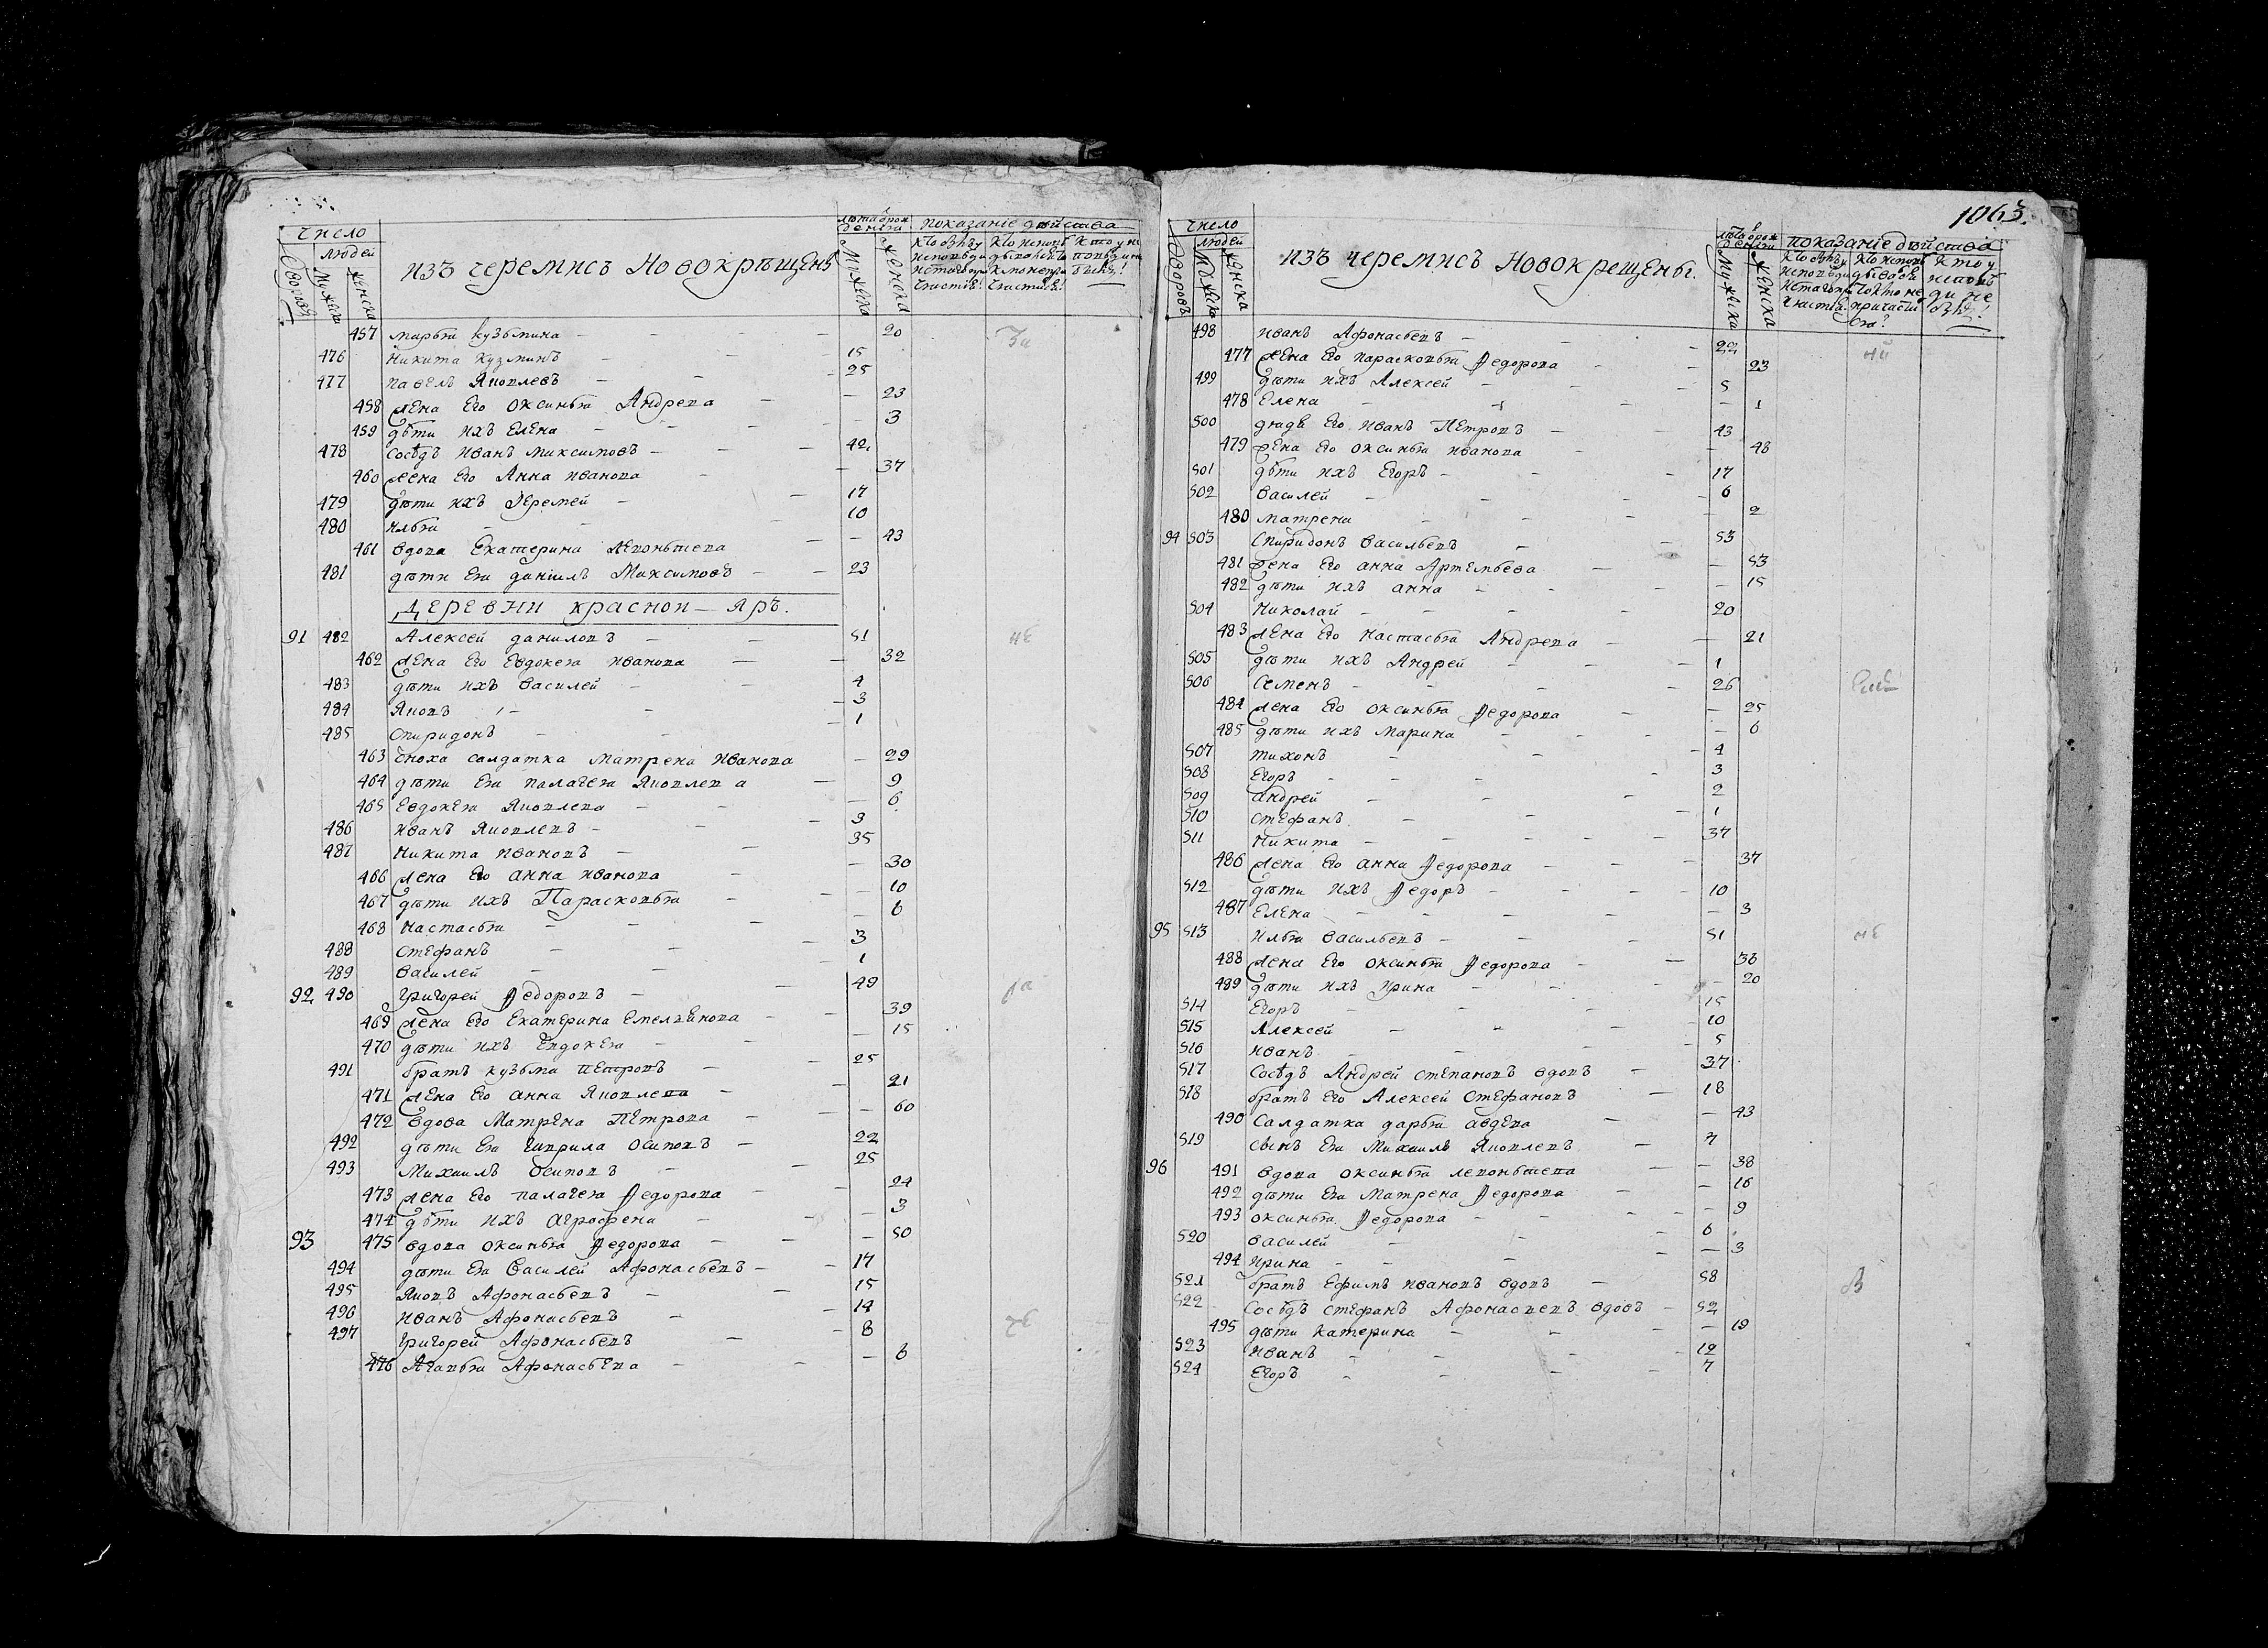 число
людей
дворовъ
мужска
женска
изъ черемисъ Новокръщены
лѣта врождения
мужска
женска
показание дѣйства
457 марья кузьмина - - - 20
476 Никита Кузминъ - - 15
477 павелъ Яковлевъ - - 25
458 жена Его оксинья Андрева - - 23
459 дѣти ихъ Елена - - - 3
478 Сосѣдъ Иванъ Максимовъ - - - 42
460 жена Его Анна иванова - - 37
479 дѣти ихъ Iеремей - - 17
480 илья - - - 10
461 вдова Екатерина леоньтева - - 43
481 дѣти Ея даниилъ Максимовъ - - 23
Деревни красной - Яръ.
91 482 Алексей даниловъ - - 51
462 жена Его Евдокея иванова - - 32
483 дѣти ихъ василей - - 4
484 Яковъ - - 3
485 спиридонъ - - 1
463 сноха салдатка Матрена иванова - 29
464 дѣти Ея палагея Яковлева - 9
465 Евдокея Яковлева - - - 6
486 иванъ Яковлевъ - - - 9
487 никита ивановъ - - 35
466 жена Его анна иванова - - 30
467 дѣти ихъ Парасковья - - - 10
468 настасья - - - - 6
488 стефанъ - - - 3
489 василей - - 1
92 490 григорей Федоровъ - - 49
469 жена Его Екатерина Емельянова - - 39
470 дѣти ихъ Евдокея - - - 15
491 братъ кузьма Петровъ - - 25
471 жена Его анна Яковлева - - 21
472 вдова Матрена Петрова - - - 60
492 дѣти Ея гаврила осиповъ - 22
493 Михаилъ осиповъ - - 25
473 жена Его палагея Федорова - - 24
474 дѣти ихъ агрофена - - - 3
93 475 вдова оксинья Федорова - - - 50
494 дѣти Ея Василей Афонасьевъ - - 17
495 Яковъ Афонасьевъ - - 15
496 иванъ Афонасьевъ - - 14
497 григорей Афонасьевъ - - 8
476 Агапья Афонасьева - - - 6
1063.
число
людей
дворовъ
мужска
женска
изъ черемисъ Новокрещены.
мужска
женска
показание дѣйства
498 иванъ Афонасьевъ - - - 22
477 жена Его парасковья Федорова - - 23
499 дѣти ихъ Алексей - - - 5
478 Елена - - - - 1
500 дядя Его иванъ Петровъ - - 43
479 жена Его оксинья иванова - - 48
501 дѣти ихъ Егоръ - - - 17
502 василей - - - 6
480 матрена - - - - 2
94 503 Спиридонъ васильевъ - - 53
481 жена Его анна Артемьева - - 53
482 дѣти ихъ анна - - - - 15
504 николай - - - - 20
483 жена Его настасья Андрева - - 21
505 дѣти ихъ Андрей - - - 1
506 семенъ - - - - 26
484 жена Его оксинья Федорова - - 25
485 дѣти ихъ марина - - - - 6
507 тихонъ - - 4
508 Егоръ - - - - 3
509 андрей - - - 2
510 стефанъ - - - 1
511 никита - - - - - 37
486 жена Его анна Федорова - - - 37
512 дѣти ихъ Федоръ - - - 10
487 Елена - - - - - 3
95 513 илья васильевъ - - - 51
488 жена Его оксинья Федорова - - 38
489 дѣти ихъ ирина - - - 20
514 Егоръ - - - 15
515 Алексей - - - 10
516 иванъ - - - - 5
517 Сосѣдъ Андрей степановъ вдовъ - 37
518 братъ Его Алексей Стефановъ - 18
490 Салдатка дарья авдева - - 43
519 сынъ Ея Михаилъ Яковлевъ - 7
96 491 вдова оксинья леоньтева - - 38
492 дѣти Ея Матрена Федорова - - 16
493 оксинья Федорова - - - - 9
520 василей - - - 6
494 ирина - - - - - 3
521 братъ Ефимъ ивановъ вдовъ - 58
522 Сосѣдъ стефанъ Афонасьевъ вдовъ - 52
495 дѣти катерина - - - - 19
523 иванъ - - - - 12
524 Егоръ - - - - 7